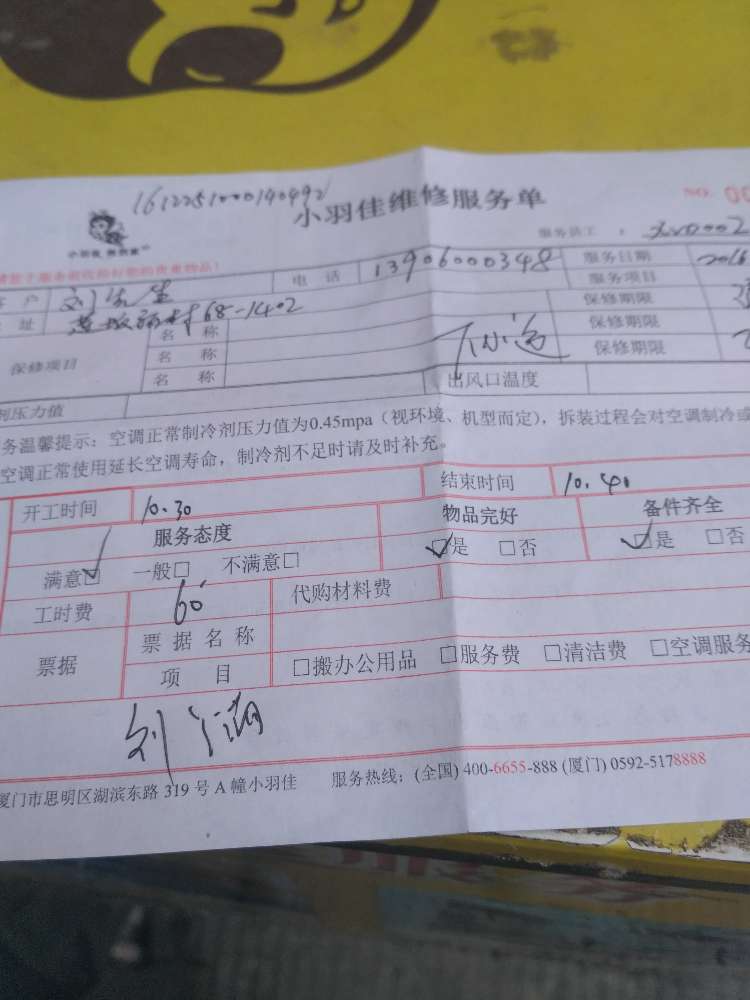 1612251000190492
小羽佳维修服务单
NO. 00
小羽佳
服务员工：
请您于服务前收拾好您的贵重物品!
客 户 刘先生 电 话 13906000348 服务日期 2016
地 址 68-1402 服务项目
保修项目 名 称 保修期限
名 称 保修期限
名 称 保修期限
剂压力值 出风口温度
务温馨提示：空调正常制冷剂压力值为0.45mpa（视环境、机型而定），拆装过程会对空调制冷或
空调正常使用延长空调寿命，制冷剂不足时请及时补充。
开工时间 10.30 结束时间 10.41
服务态度 物品完好 备件齐全
满意☑ 一般□ 不满意□ ☑是 □否 ☑是 □否
工时费 60 代购材料费
票据 票 据 名 称
项 目 □搬办公用品 □服务费 □清洁费 □空调服务
刘
厦门市思明区湖滨东路 319 号 A 幢小羽佳 服务热线：(全国) 400-6655-888 (厦门) 0592-5178888